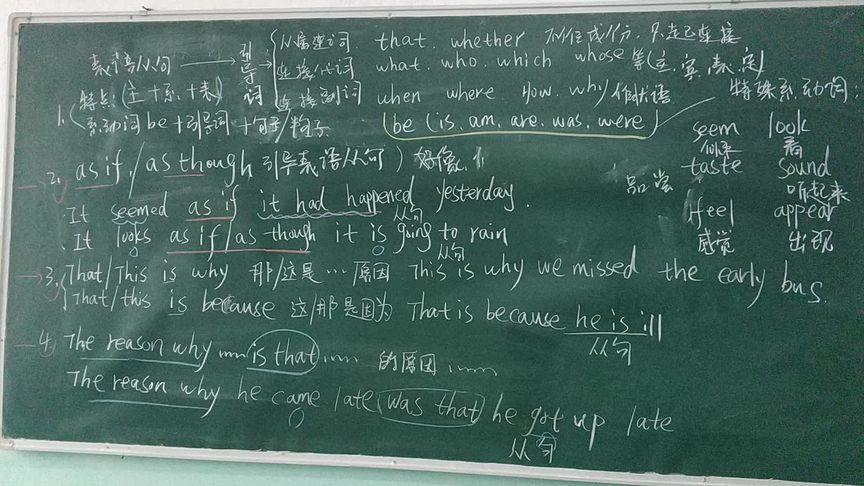 从属连词 that. whether 不作成分,只起连接
表语从句 引导词 连接代词 what. who. which whose 等(主,宾,表,定)
连接副词 when where. How. why 作状语
1. 特点:(主+系+表)
系动词be+引导词+句子/句子
(be (is. am. are. was. were)
特殊系动词:
seem look
看
taste sound
品尝 听起来
feel appear
感觉 出现
2. as if / as though 引导表语从句) 好像
It seemed as if it had happened yesterday.
从句
It looks as if/as though it is going to rain
从句
3. That/This is why 那/这是…原因 This is why we missed the early bus.
That/this is because 这/那是因为 That is because he is ill
从句
4. The reason why …… is that …… 的原因……
The reason why he came late was that he got up late
从句